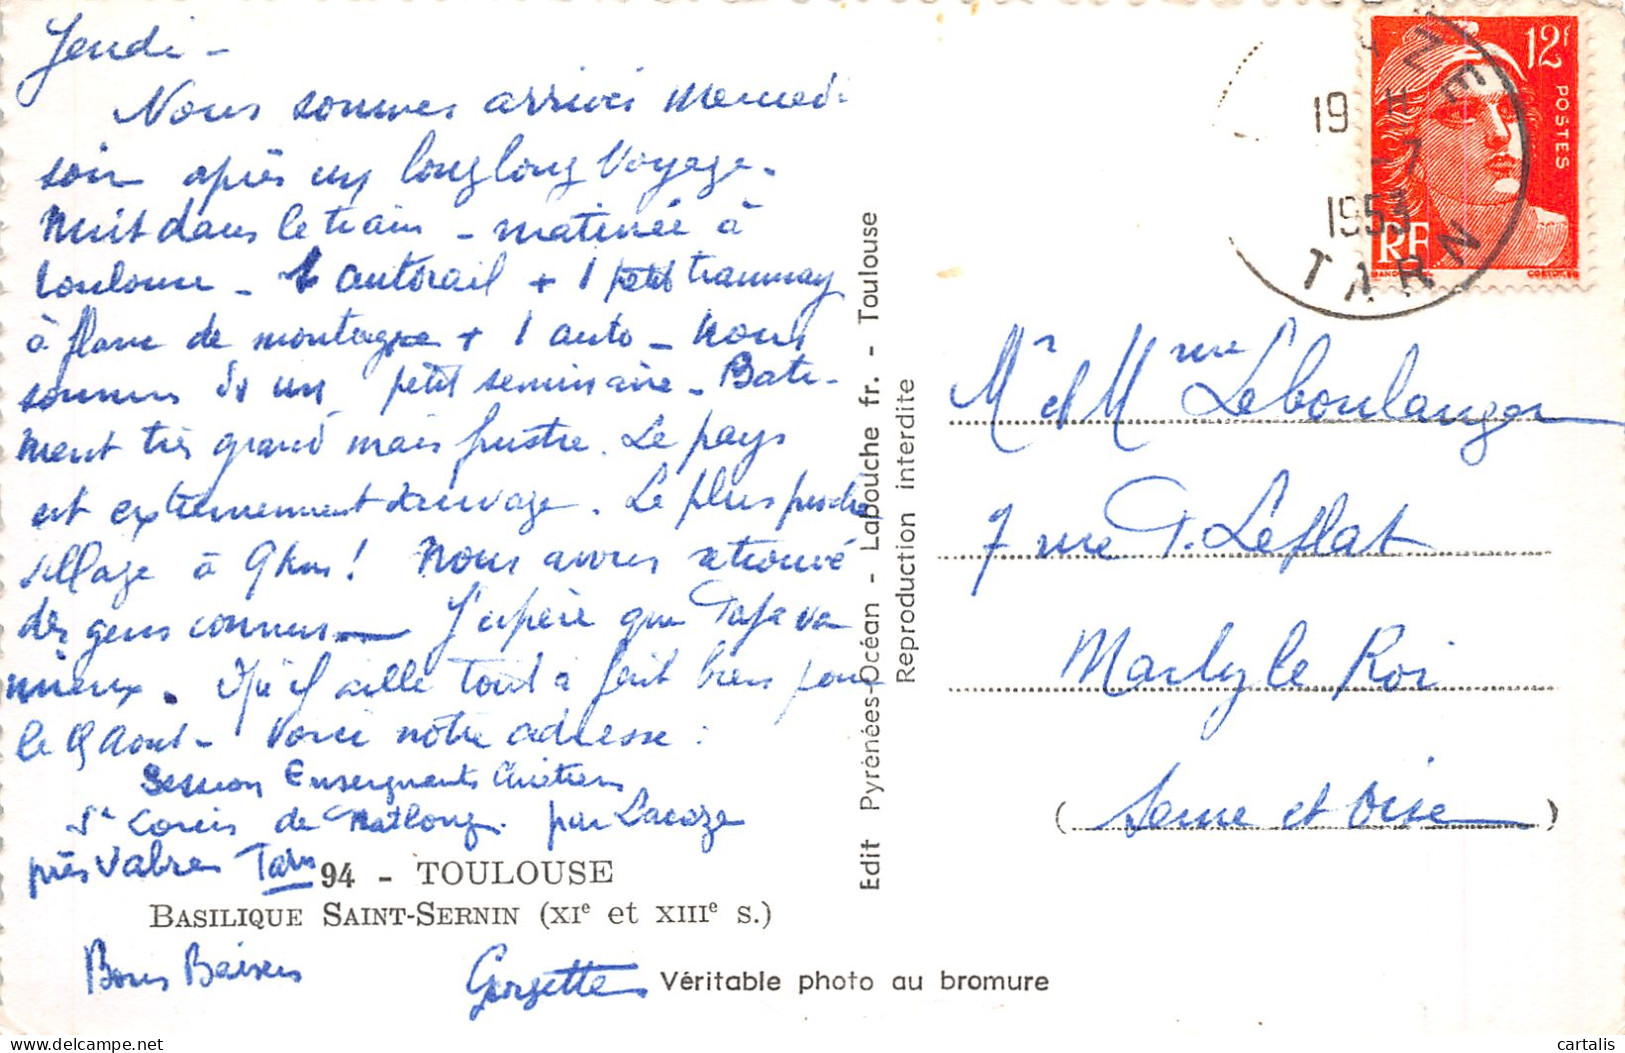 Jeudi -
Nous sommes arrivés Mercredi
soir après un long long voyage.
Nuit dans le train - matinée à
Toulouse - 1 autorail + 1 petit tramway
à flanc de montagne + 1 auto - Nous
sommes ds un petit seminaire - Bati-
ment très grand mais frustre. Le pays
est extremement sauvage. Le plus proche
village à 9 kms! Nous avons retrouvé
des gens connus - J'espère que Papa va
mieux. Qu'il aille tout à fait bien pour
le 9 Aout - Voici notre adresse :
Session Enseignants Chrétiens
St de par Lacaze
près Vabres Tarn
94 - TOULOUSE
BASILIQUE SAINT-SERNIN (XIe et XIIIe s.)
Bons Baisers
Georgette
Véritable photo au bromure
Edit Pyrénées-Océan - Labouche fr. - Toulouse
Reproduction interdite
12F
POSTES
RF
19 H
-7
1953
TARN
Mr et Mme Leboulanger
7 rue P. Leflat
Marly le Roi
(Seine et Oise)
cartalis